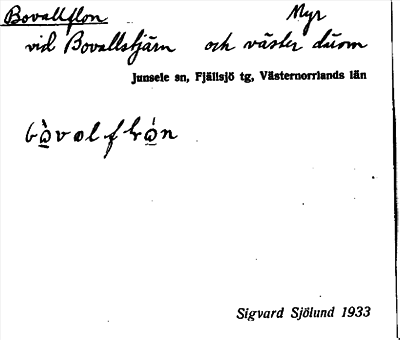 Bovallflon Myr
vid Bovallstjärn och väster därom
Junsele sn, Fjällsjö tg, Västernorrlands län
Sigvard Sjölund 1933